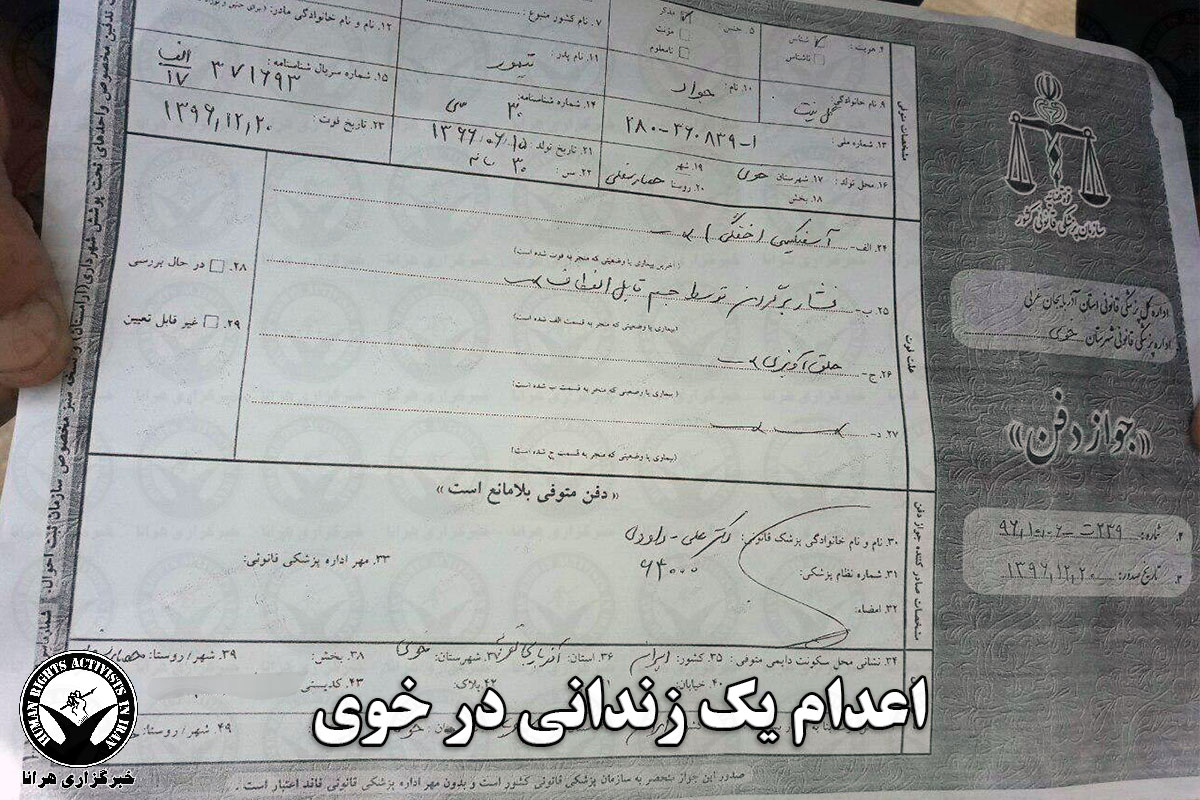 قوه قضاییه
سازمان پزشکی قانونی کشور
اداره کل پزشکی قانونی استان آذربایجان غربی
اداره پزشکی قانونی شهرستان خوی
«جواز دفن»
۲. شماره:
۳. تاریخ صدور: ۱۳۹۶,۱۲,۲۰
مشخصات متوفی
۴. هویت: شناس
ناشناس
۵. جنس: مذکر
مونث
نامعلوم
۷. نام کشور متبوع:
۹. نام خانوادگی
۱۰. نام: جواد
۱۱. نام پدر: تیمور
۱۲. نام و نام خانوادگی مادر:
۱۳. شماره ملی: ۲۸۰-۳۶۰۸۳۹-۱
۱۴. شماره شناسنامه: ۳۰ سی
۱۵. شماره سریال شناسنامه: ۳۷۱۶۹۳ الف ۱۷
۱۶. محل تولد: ۱۷. شهرستان خوی
۱۸. بخش
۱۹. شهر
۲۰. روستا حصار سفلی
۲۱. تاریخ تولد: ۱۳۶۶,۰۶,۱۵
۲۲. سن: ۳۰ ساله
۲۳. تاریخ فوت: ۱۳۹۶,۱۲,۲۰
علت فوت
۲۴. الف- آسفیکسی (خفگی)
(آخرین بیماری یا وضعیتی که منجر به فوت شده است)
۲۵. ب- فشار بر گردن توسط جسم قابل انعطاف
(بیماری یا وضعیتی که منجر به قسمت الف شده است)
۲۶. ج- حلق آویزی
(بیماری یا وضعیتی که منجر به قسمت ب شده است)
۲۷. د-
(بیماری یا وضعیتی که منجر به قسمت ج شده است)
۲۸. در حال بررسی
۲۹. غیر قابل تعیین
مشخصات صادر کننده جواز دفن
« دفن متوفی بلامانع است »
۳۰. نام و نام خانوادگی پزشک قانونی: دکتر علی داودی
۳۱. شماره نظام پزشکی:
۳۲. امضاء:
۳۳. مهر اداره پزشکی قانونی:
۳۴. نشانی محل سکونت دایمی متوفی: ۳۵. کشور: ایران ۳۶. استان: ۳۷. شهرستان: خوی ۳۸. بخش: ۳۹. شهر/ روستا:
۴۰. خیابان: ۴۲. پلاک: ۴۳. کدپستی
۴۹. شهر/ روستا:
صدور این جواز منحصر به سازمان پزشکی قانونی کشور است و بدون مهر اداره پزشکی قانونی فاقد اعتبار است.
اعدام یک زندانی در خوی
HUMAN RIGHTS ACTIVISTS IN IRAN
خبرگزاری هرانا